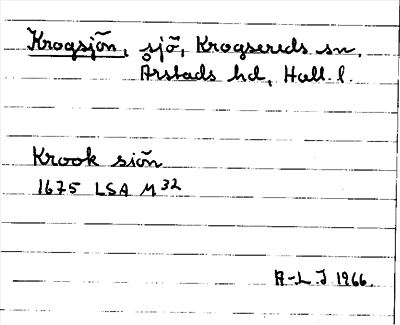 Krogsjön, sjö, Krogsereds sn,
Årstads hd, Hall. l.
Krook siön
1675 LSA M 32
A-L J 1966.